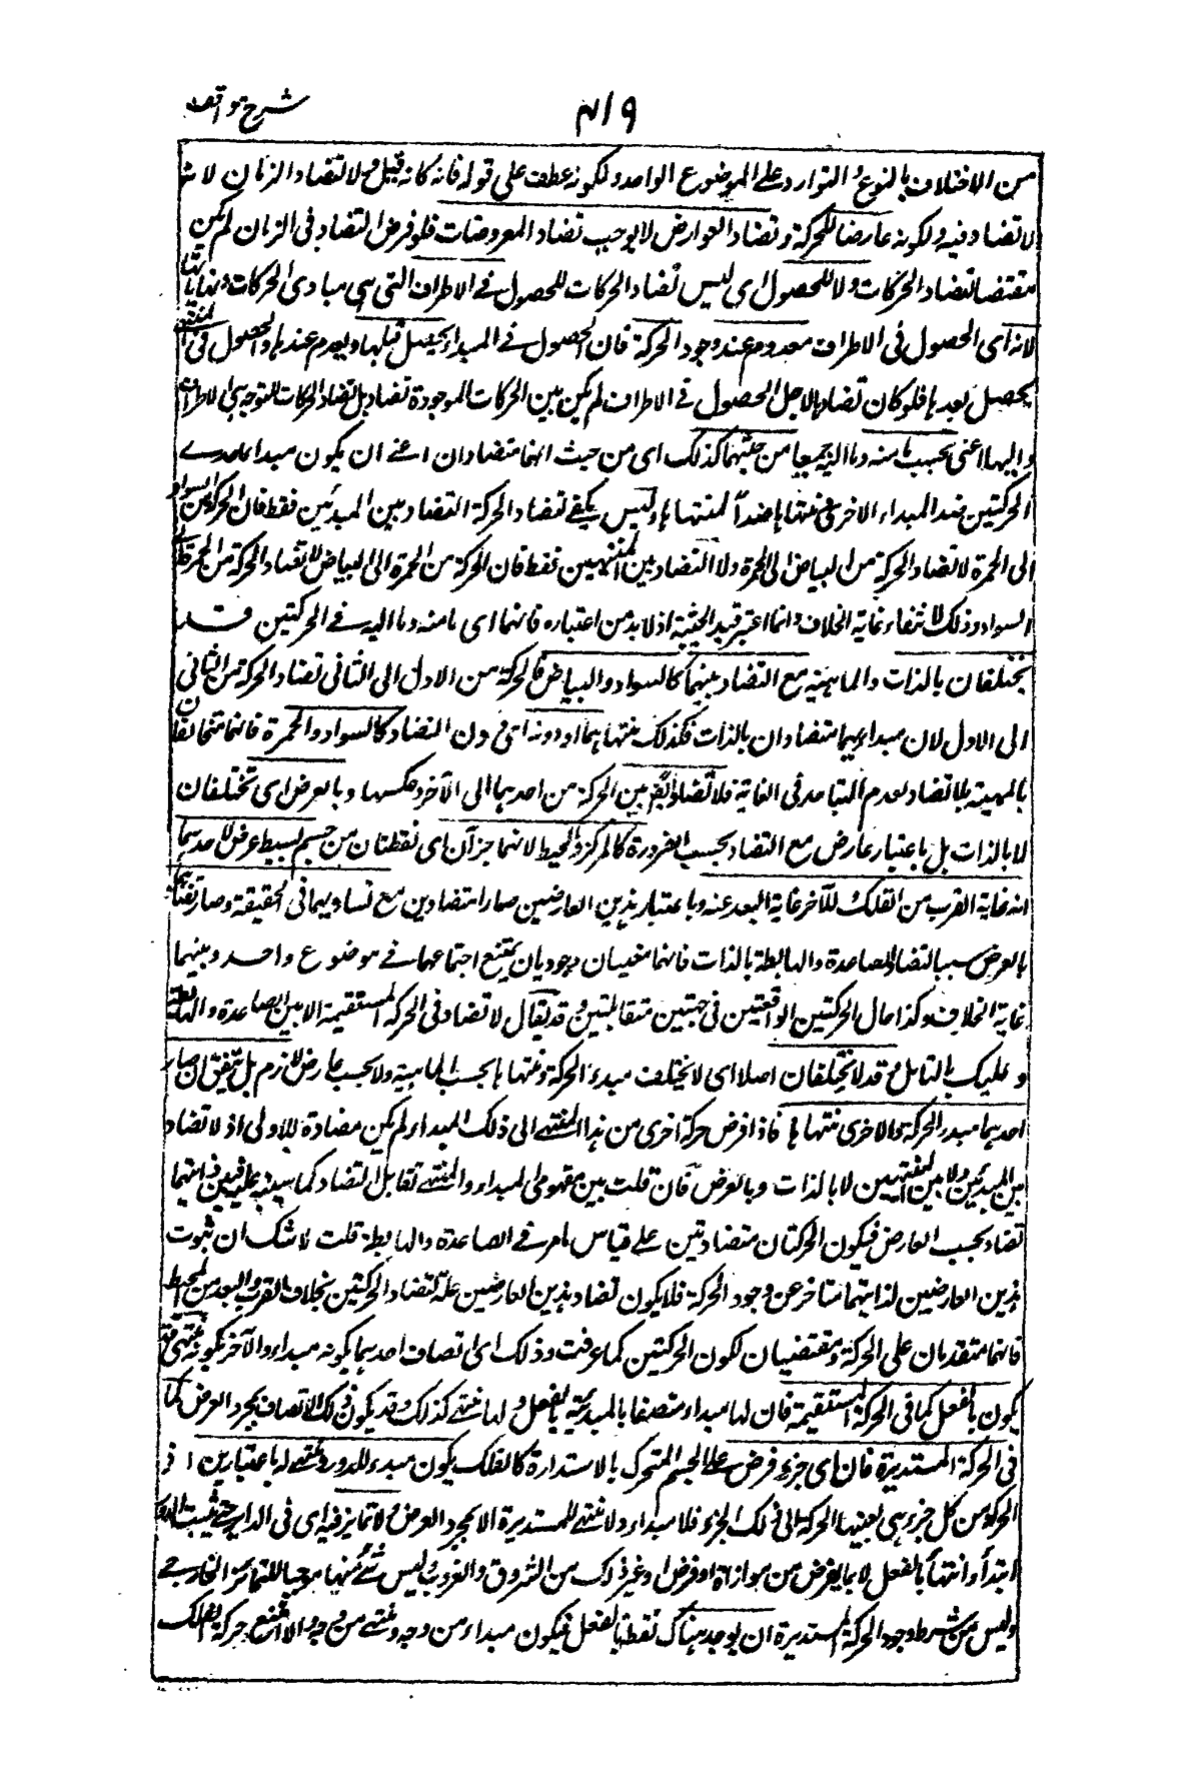 شرح مواقف
۴۱۹
من الاختلاف بالنوع والتوارد على الموضوع الواحد ولكونه عطف على قوله فانه كانه قيل ولا لتضاد الزمان لانه
لا تضاد فيه ولكونه عارضا للحركة وتضاد العوارض لا يوجب تضاد المعروضات فلو فرض التضاد في الزمان لم يكن
مقتضيا لتضاد الحركات ولا للحصول اى ليس تضاد الحركات للحصول في الاطراف التى هى مبادى الحركات ونهاياتها
لانه اى الحصول فى الاطراف معدوم عند وجود الحركة فان الحصول في المبداء يحصل قبلها ويعدم عندها والحصول فى المنتهى
يحصل بعدها فلو كان تضادها لاجل الحصول في الاطراف لم يكن بين الحركات الموجودة تضاد بل تضاد الحركات للتوجه من الاطراف
واليها اعنى بحسب ما منه وما اليه جميعا من حيثهما كذلك اى من حيث انهما متضادان اعنى ان يكون مبداء احدى
الحركتين ضد المبداء الاخرى ومنتهاها ضداً لمنتهاها وليس يكفى لتضاد الحركة التضاد بين المبدئين فقط فان الحركة من السواد
الى الحمرة لا تضاد الحركة من البياض الى الحمرة ولا التضاد بين المنتهيين فقط فان الحركة من الحمرة الى البياض لا تضاد الحركة من الحمرة الى
السواد وذلك لانتفاء غاية الخلاف وانما اعتبر قيد الحيثية اذ لا بد من اعتباره فانهما اى ما منه وما اليه في الحركتين قد
يختلفان بالذات والماهية مع التضاد بينهما كالسواد والبياض فالحركة من الاول الى الثانى تضاد الحركة من الثانى
الى الاول لان مبدايهما متضادان بالذات فكذلك منتهاهما او دونه اى دون التضاد كالسواد والحمرة فانهما متخالفان
بالمهية بلا تضاد لعدم التباعد فى الغاية فلا تضاد ايضا بين الحركة من احدهما الى الآخر وعكسها وبالعرض اى تختلفان
لا بالذات بل باعتبار عارض مع التضاد بحسب الضرورة كالمركز والمحيط لانهما جزآن اى نقطتان من جسم بسيط عرض لاحدهما
انه غاية القرب من الفلك وللآخر غاية البعد عنه وباعتبار هذين العارضين صارا متضادين مع تساويهما فى الحقيقة وصار تضادهما
بالعرض سببا لتضاد الصاعدة والهابطة بالذات فانهما معنيان وجوديان يمتنع اجتماعهما في موضوع واحد وبينهما
غاية الخلاف وكذا حال الحركتين الواقعتين فى جهتين متقابلتين وقد يقال لا تضاد فى الحركة المستقيمة الا بين الصاعدة والهابطة
وعليك بالتامل وقد لا يختلفان اصلا اى لا يختلف مبدء الحركة ومنتهاها بحسب الماهية ولا بحسب عارض لازم بل يتفق ان صار
احدهما مبدء الحركة والاخرى منتهاها فاذا فرض حركة اخرى من هذا المنتهى الى ذلك المبداء لم يكن مضادة للاولى اذ لا تضاد
بين المبدئين ولا بين المنتهيين لا بالذات وبالعرض فان قلت بين مفهومى المبداء والمنتهى تقابل التضاد كما سينبه عليه فبين ذاتيهما
تضاد بحسب العارض فيكون الحركتان متضادتين على قياس ما مر في الصاعدة والهابطة قلت لا شك ان ثبوت
هذين العارضين لذاتيهما متاخر عن وجود الحركة فلا يكون تضاد هذين العارضين علة لتضاد الحركتين بخلاف القرب والبعد من المحيط
فانهما متقدمان على الحركة ومقتضيان لكون الحركتين كما عرفت وذلك اى اتصاف احدهما بكونه مبداء والآخر بكونه منتهى قد
يكون بالفعل كما فى الحركة المستقيمة فان لها مبداء متصفا بالمبدئية بالفعل ولها منتهى كذلك وقد يكون ذلك الاتصاف بمجرد العرض كما
فى الحركة المستديرة فان اى جزء فرض على الجسم المتحرك بالاستدارة كالفلك يكون مبدء للدور ومنتهى له باعتبارين اذ
الحركة من كل جزء هى بعينها الحركة الى ذلك الجزء فلا مبداء ولا منتهى للمستديرة الا بمجرد العرض ولا تمايز فيه اى فى الدائر حتى يثبت للدور
ابتدأ وانتهأ بالفعل لا بما يعرض من موازاة او فرض او غير ذلك من الشروق والغروب وليس شئ منها موجبا للتمايز الخارجى
وليس من شرط وجود الحركة المستديرة ان يوجد هناك نقطة بالفعل فيكون مبداء من وجه ومنتهى من وجه والا امتنع حركة الفلك